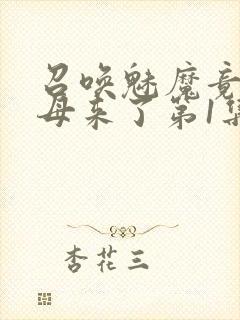 召唤魅魔竟
母来了第1集
杏花三